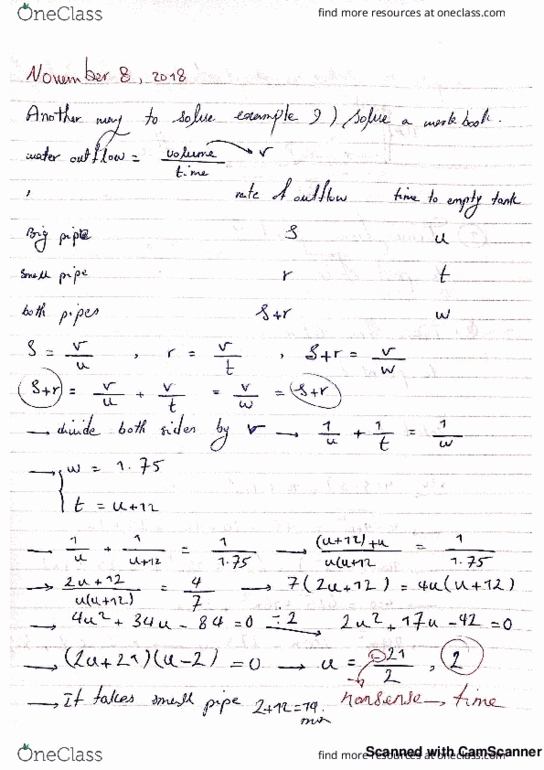 OneClass find more resources at oneclass.com
November 8, 2018
Another way to solve example 9) solve a work book.
water outflow = volume / time → v
, rate of outflow time to empty tank
Big pipe S u
small pipe r t
both pipes S+r w
S = v/u , r = v/t , S+r = v/w
S+r = v/u + v/t = v/w = S+r
→ divide both sides by v → 1/u + 1/t = 1/w
→ { w = 1.75
t = u+12
→ 1/u + 1/u+12 = 1/1.75 → (u+12)+u / u(u+12 = 1/1.75
→ 2u+12 / u(u+12) = 4/7 → 7(2u+12) = 4u(u+12)
→ 4u² + 34u - 84 = 0 ÷2 → 2u² + 17u - 42 = 0
→ (2u+21)(u-2) = 0 → u = -21/2 , 2
→ It takes small pipe 2+12=14 min nonsense → time
OneClass find more resources at oneclass.com
Scanned with CamScanner